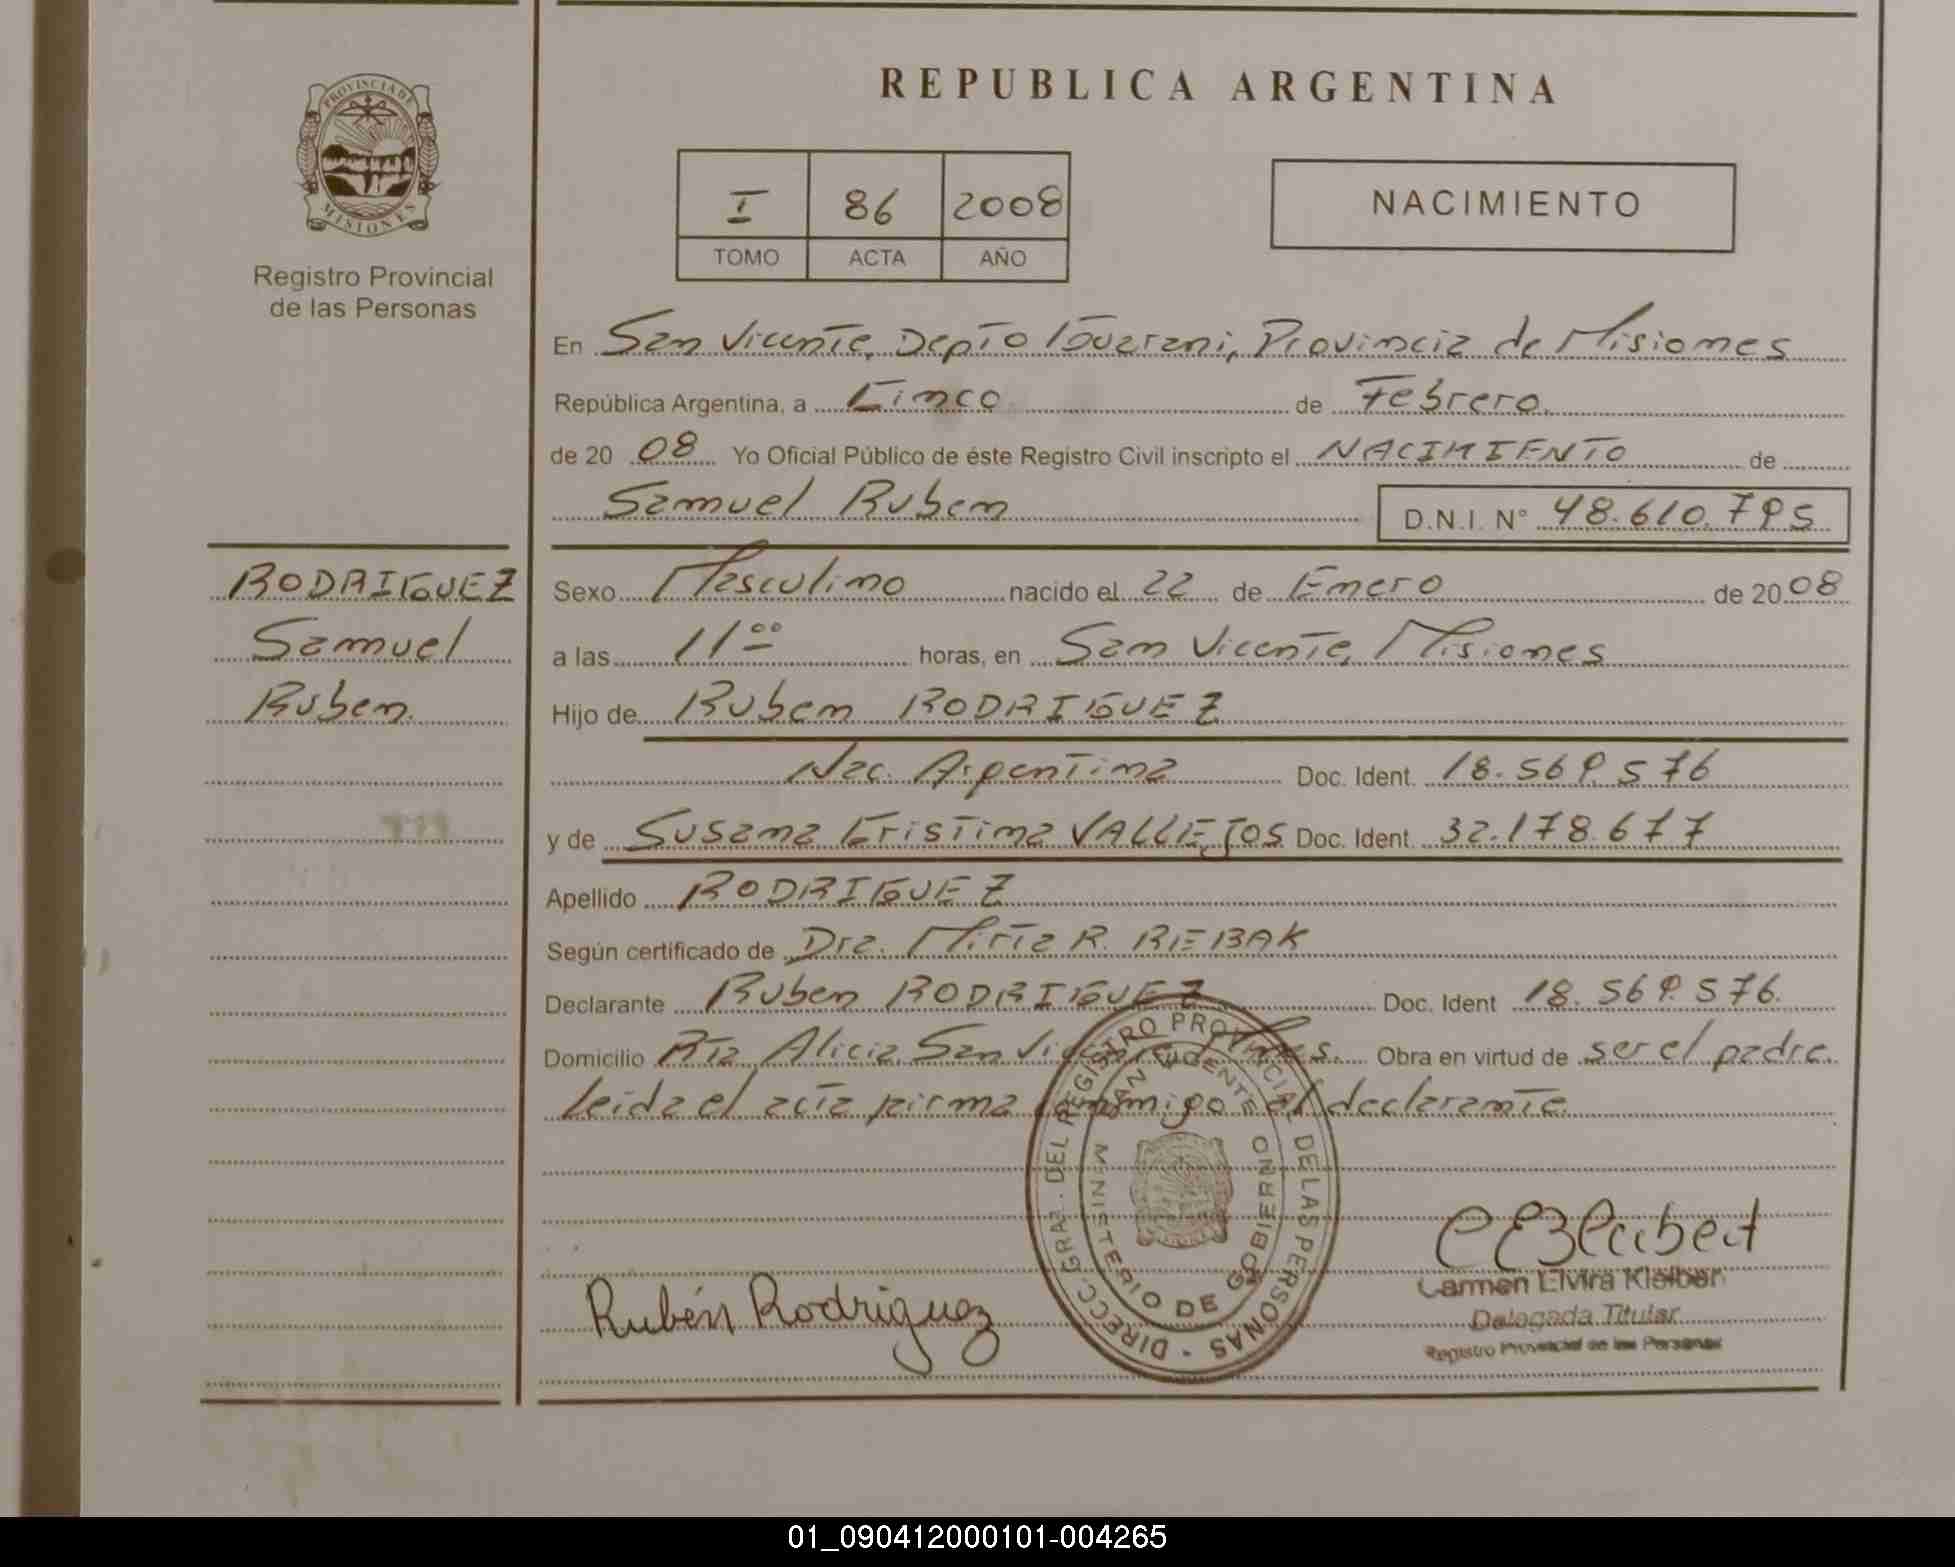 REPUBLICA ARGENTINA
PROVINCIA DE MISIONES
Registro Provincial
de las Personas
I 86 2008
TOMO ACTA AÑO
NACIMIENTO
En San Vicente, Depto Guarani, Provincia de Misiones
República Argentina, a Cinco de Febrero.
de 20 08 Yo Oficial Público de éste Registro Civil inscripto el NACIMIENTO de
Samuel Ruben D.N.I. N° 48.610.795
RODRIGUEZ
Samuel
Ruben.
Sexo Masculino nacido el 22 de Enero de 20 08
a las 11 00 horas, en San Vicente, Misiones
Hijo de Ruben RODRIGUEZ
Nac. Argentina Doc. Ident. 18.569.576
y de Susana Cristina VALLEJOS Doc. Ident. 32.178.677
Apellido RODRIGUEZ
Según certificado de Dra. Mirta R. RIEBAK
Declarante Ruben RODRIGUEZ Doc. Ident 18.569.576.
Domicilio Pta Alicia San Vicente Mnes. Obra en virtud de ser el padre.
Leida el acta firma conmigo el declarante
DIRECC. GRAL. DEL REGISTRO PROVINCIAL DE LAS PERSONAS
SAN VICENTE
MINISTERIO DE GOBIERNO
Rubén Rodriguez
Carmen Elvira Kleiber
Delegada Titular
Registro Provincial de las Personas
01_090412000101-004265